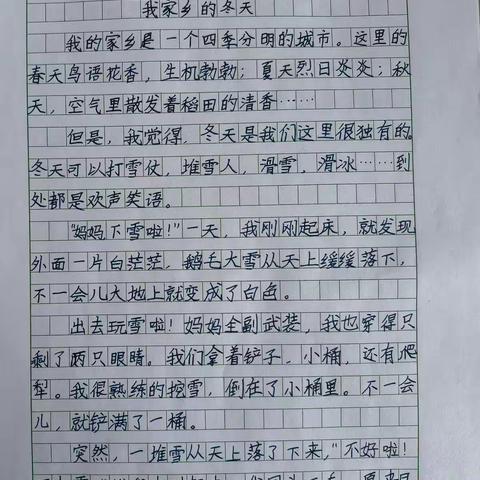 我家乡的冬天
我的家乡是一个四季分明的城市。这里的
春天鸟语花香，生机勃勃；夏天烈日炎炎；秋
天，空气里散发着稻田的清香……
但是，我觉得，冬天是我们这里很独有的。
冬天可以打雪仗，堆雪人，滑雪，滑冰……到
处都是欢声笑语。
“妈妈下雪啦！”一天，我刚刚起床，就发现
外面一片白茫茫，鹅毛大雪从天上缓缓落下，
不一会儿大地上就变成了白色。
出去玩雪啦！妈妈全副武装，我也穿得只
剩了两只眼睛。我们拿着铲子，小桶，还有爬
犁。我很熟练的挖雪，倒在了小桶里。不一会
儿，就铲满了一桶。
突然，一堆雪从天上落了下来，“不好啦！